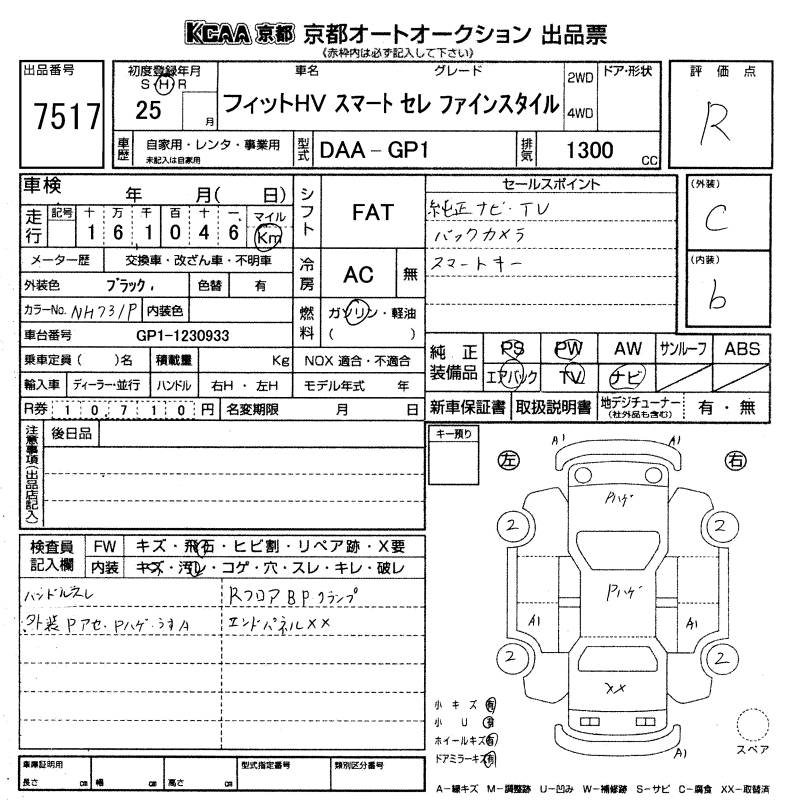 KCAA 京都 京都オートオークション 出品票
《赤枠内は必ず記入して下さい》
出品番号 7517
初度登録年月 S H R 25 月
車名 グレード
フィットHV スマート セレ ファインスタイル
2WD 4WD
ドア・形状
評価点 R
車歴 自家用・レンタ・事業用 未記入は自家用
型式 DAA-GP1
排気 1300 CC
車検 年 月( 日)
シフト FAT
セールスポイント
純正ナビ・TV
バックカメラ
スマートキー
(外装) C
(内装) b
走行 記号 十 万 千 百 十 一 マイル Km
1 6 1 0 4 6
メーター歴 交換車・改ざん車・不明車
冷房 AC 無
外装色 ブラック 色替 有
カラーNo. NH731P 内装色
燃料 ガソリン・軽油 ( )
車台番号 GP1-1230933
乗車定員( )名 積載量 Kg NOX 適合・不適合
純正装備品 PS PW AW サンルーフ ABS
エアバック TV ナビ
輸入車 ディーラー・並行 ハンドル 右H・左H モデル年式 年
R券 10,710円 名変期限 月 日
新車保証書 取扱説明書 地デジチューナー (社外品も含む) 有・無
注意事項(出品店記入) 後日品
キー預り
左 右
A1 A1
Pハゲ
2 2
Pハゲ
A1 A1
2 2
XX
A1
検査員記入欄 FW キズ・飛石・ヒビ割・リペア跡・X要
内装 キズ・汚レ・コゲ・穴・スレ・キレ・破レ
ハンドルスレ
RフロアBPクランプ
外装Pアセ・Pハゲ・うすA
エンドパネルXX
小キズ 有
小U 有
ホイールキズ 有
ドアミラーキズ 有
スペア
車庫証明用 長さ cm 幅 cm 高さ cm
型式指定番号 類別区分番号
A-線キズ M-調整跡 U-凹み W-補修跡 S-サビ C-腐食 XX-取替済